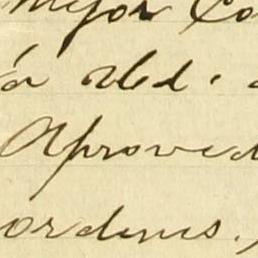 mejor Co
á Vd. a
Aproved
ordenes.